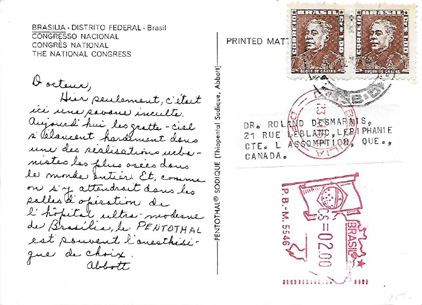 BRASILIA - DISTRITO FEDERAL - Brasil
CONGRESSO NACIONAL
CONGRÈS NATIONAL
THE NATIONAL CONGRESS
Docteur,
Hier seulement, c'était
ici une savane inculte.
Aujourd'hui les gratte-ciel
s'élancent hardiment dans
une des réalisations urba-
nistes les plus osées dans
le monde entier. Et, comme
on s'y attendrait dans les
salles d'opération de
l'hôpital ultra-moderne
de Brasilia, le PENTOTHAL
est souvent l'anesthési-
que de choix.
Abbott
PENTOTHAL® SODIQUE (Thiopental Sodique, Abbott)
PRINTED MATT
DR. ROLAND DESMARAIS,
21 RUE LEBLANC, LEPIPHANIE
CTE. L ASSOMPTION, QUE.,
CANADA.
BRASIL
=02.00
P.B-M. 5546